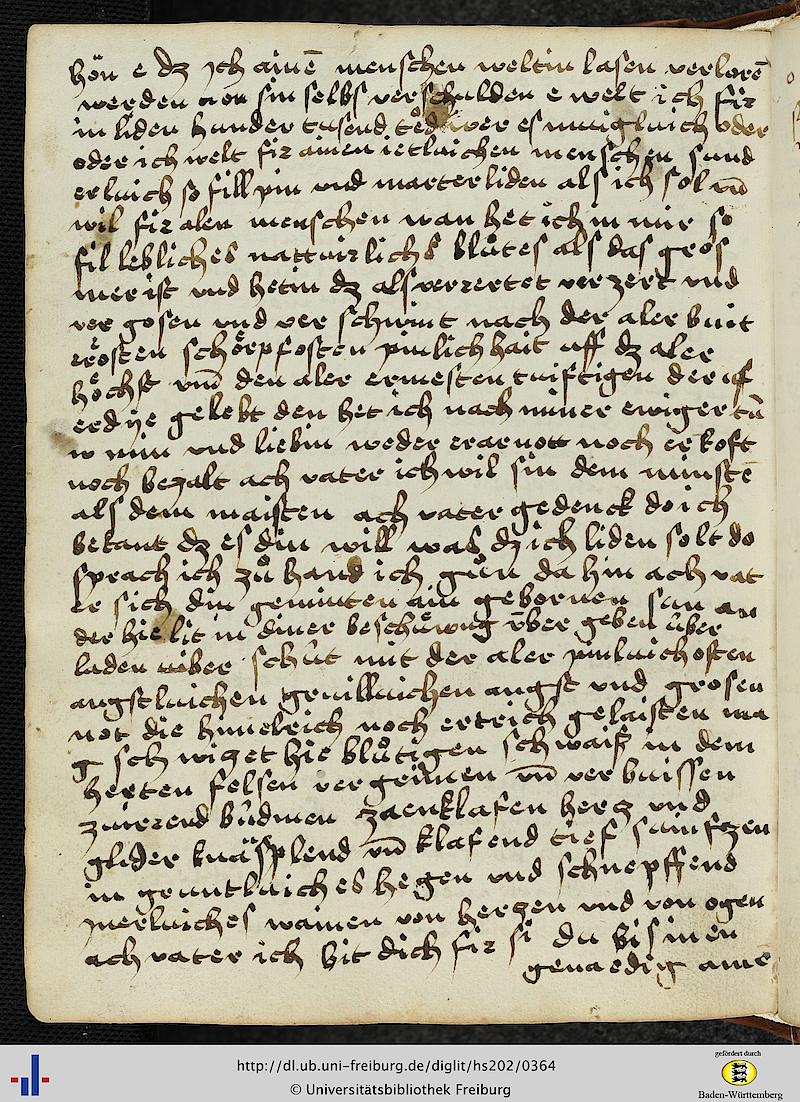 hön e dz ich ainē menschen weltin lasen verlorē
werden von sin selbs verschulden e welt ich fir
in liden hunder tusend töd wer es muiglaich oder
oder ich welt fir ainen ietlaichen menschen sund
erlaich so fill pin und marter liden als ich sol vn̄
wil fir alen menschen wan het ich in mir so
fil lebliches nattuirlichs blůtes als das gros
mer ist und hetin dz als verrertet verzert und
ver gosen und ver schwint nach der aler buit
rrösten schörpfosten pinlichhait uff dz aler
höchst vm̄ den aler ermesten tuiftigen der uf
erd ye gelebt den het ich nach miner ewiger
und liebin weder erarnott noch erkoft
noch bezalt ach vater ich wil sin dem minstē
als dem maisten ach vater gedenck do ich
bekant dz es din will was dz ich liden solt do
sprach ich zů hand ich gůn da hin ach vat
er sich din geminten ain gebornen sun an
der hie lit in diner beschöwng über geben über
laden über schůt mit der aler pinlaichosten
angstlaichen gruillaichen angst und grosen
not die himelrich noch ertrich gelaisten ma
g sch wiget hie blůtigen schwaiß in dem
herten felsen ver grinnen vn̄ ver buissen
zuirrend bůdmen zaenklafen herz und
glider knäsplend vn̄ klafend tief suinfzen
in gruntlaiches hegen und schnepffend
inerlaiches wainen von herzen und von ogen
ach vater ich bit dich fir si du bis in en
genaedig amē
http://dl.ub.uni-freiburg.de/diglit/hs202/0364
© Universitätsbibliothek Freiburg
gefördert durch
Baden-Württemberg